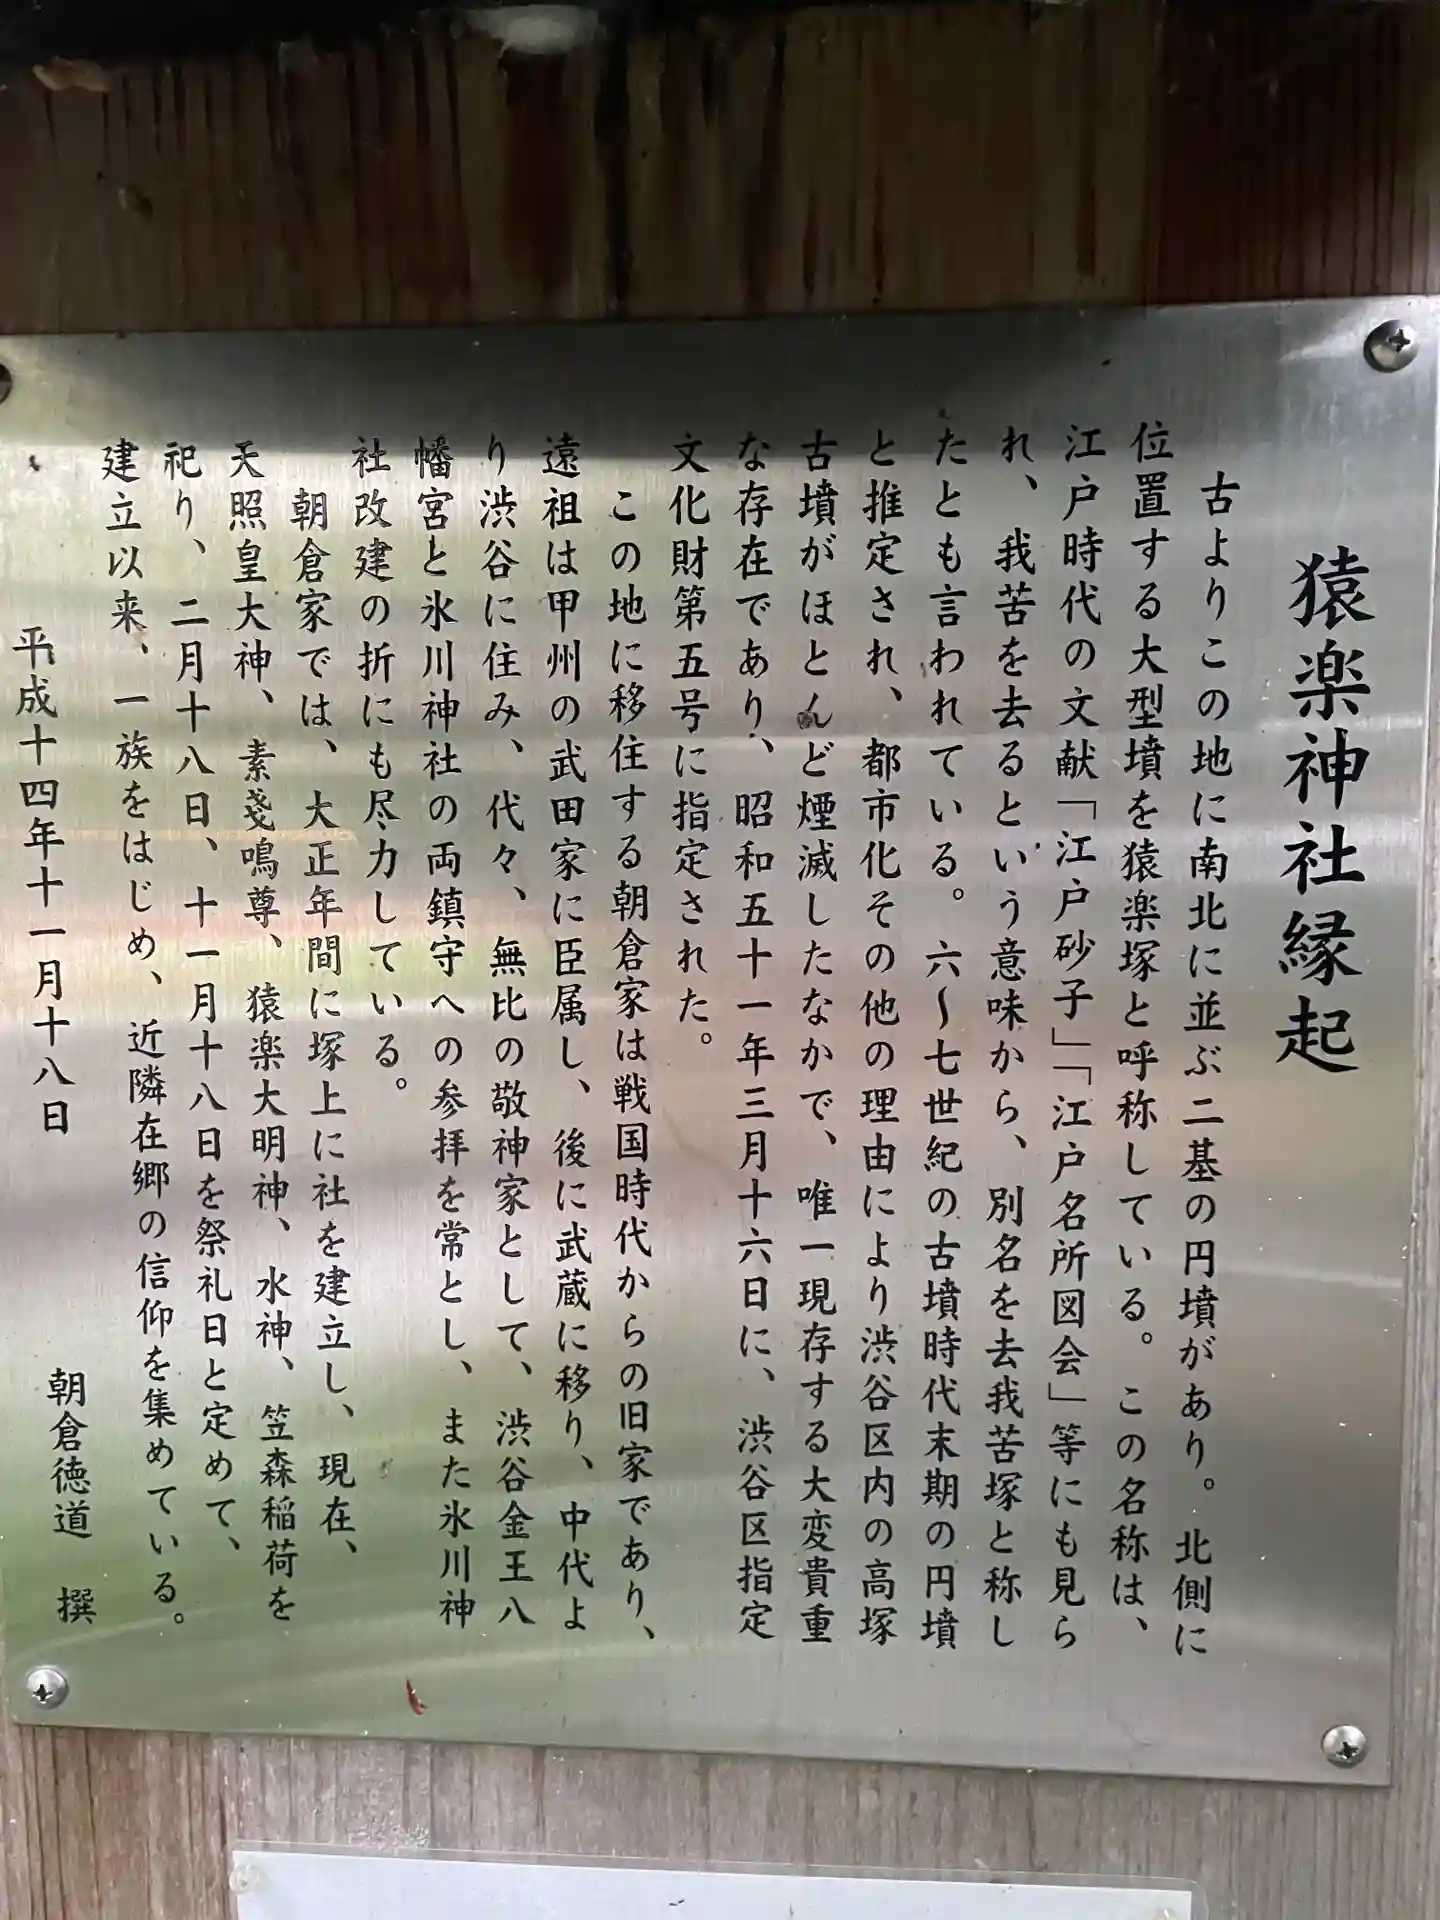 猿楽神社縁起
古よりこの地に南北に並ぶ二基の円墳があり。北側に
位置する大型墳を猿楽塚と呼称している。この名称は、
江戸時代の文献「江戸砂子」「江戸名所図会」等にも見ら
れ、我苦を去るという意味から、別名を去我苦塚と称し
たとも言われている。六〜七世紀の古墳時代末期の円墳
と推定され、都市化その他の理由により渋谷区内の高塚
古墳がほとんど煙滅したなかで、唯一現存する大変貴重
な存在であり、昭和五十一年三月十六日に、渋谷区指定
文化財第五号に指定された。
この地に移住する朝倉家は戦国時代からの旧家であり、
遠祖は甲州の武田家に臣属し、後に武蔵に移り、中代よ
り渋谷に住み、代々、無比の敬神家として、渋谷金王八
幡宮と氷川神社の両鎮守への参拝を常とし、また氷川神
社改建の折にも尽力している。
朝倉家では、大正年間に塚上に社を建立し、現在、
天照皇大神、素戔鳴尊、猿楽大明神、水神、笠森稲荷を
祀り、二月十八日、十一月十八日を祭礼日と定めて、
建立以来、一族をはじめ、近隣在郷の信仰を集めている。
平成十四年十一月十八日
朝倉徳道　撰